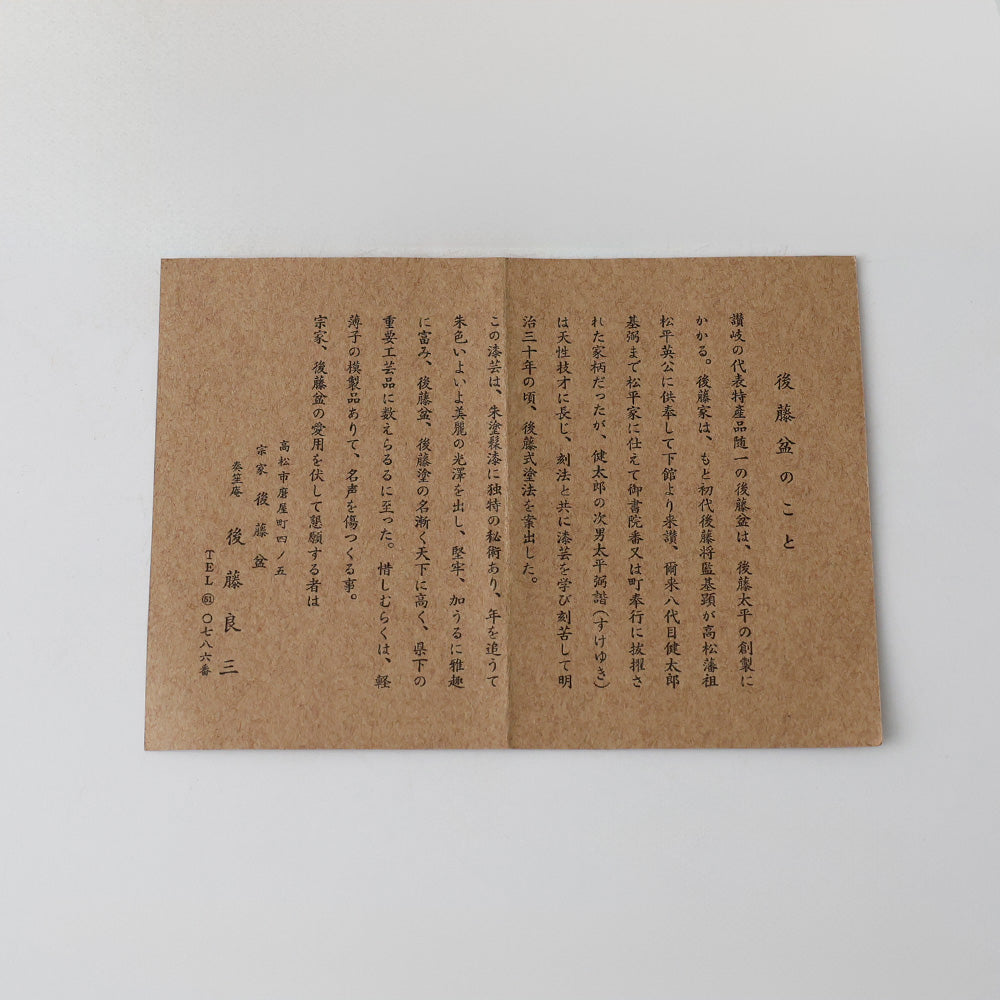 後藤盆のこと
讃岐の代表特産品随一の後藤盆は、後藤太平の創製に
かかる。後藤家は、もと初代後藤将監基顕が高松藩祖
松平英公に供奉して下館より来讃、爾来八代目健太郎
基弼まで松平家に仕えて御書院番又は町奉行に抜擢さ
れた家柄だったが、健太郎の次男太平弼諧(すけゆき)
は天性技才に長じ、刻法と共に漆芸を学び刻苦して明
治三十年の頃、後藤式塗法を案出した。
この漆芸は、朱塗髹漆に独特の秘術あり、年を追うて
朱色いよいよ美麗の光澤を出し、堅牢、加うるに雅趣
に富み、後藤盆、後藤塗の名漸く天下に高く、県下の
重要工芸品に数えらるるに至った。惜しむらくは、軽
薄子の模製品ありて、名声を傷つくる事。
宗家、後藤盆の愛用を伏して懇願する者は
高松市磨屋町四ノ五
宗家 後藤盆
奏笙庵 後藤良三
TEL(51)〇七八六番